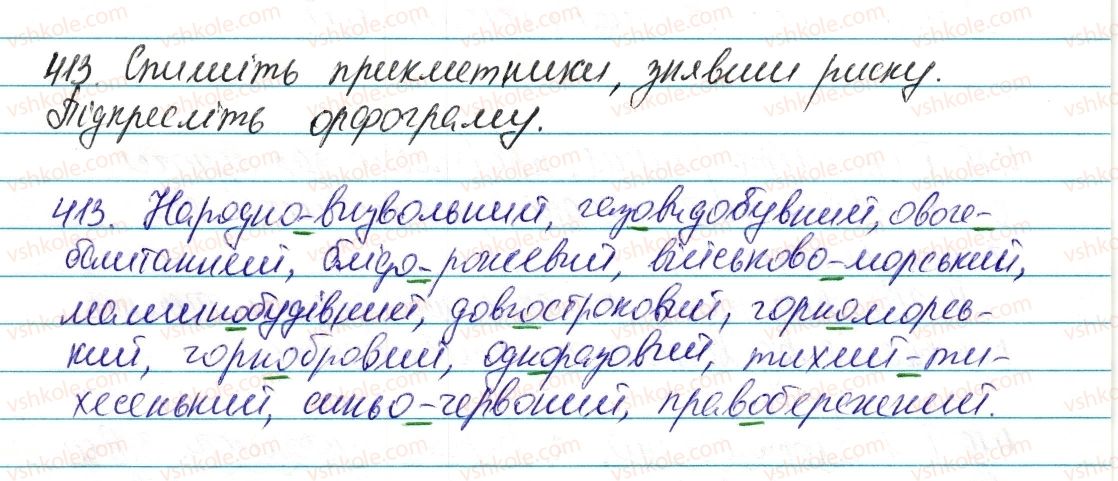 413. Спишіть прикметники, знявши риску.
Підкресліть орфограму.
413. Народно-визвольний, газовидобувний, овоче-
бамитанний, блідо-рожевий, військово-морський,
машинобудівний, довгостроковий, чорноморсь-
кий, чорнобровий, одноразовий, тихий-ти-
хесенький, синьо-червоний, правобережний.